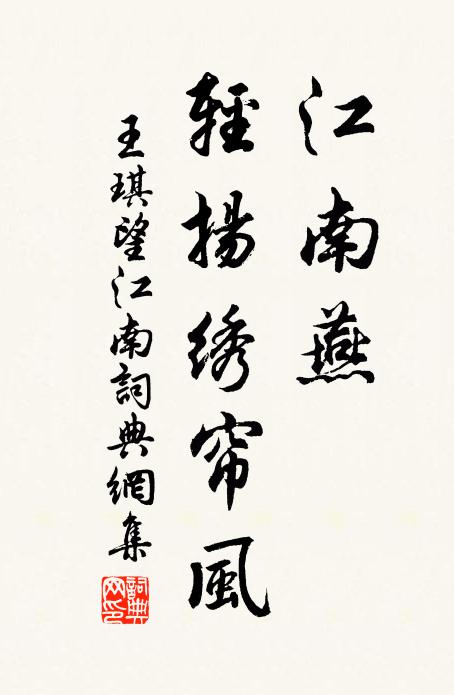 江南燕
輕揚绣帘風
王琪望江南詞典網集
詞典網印